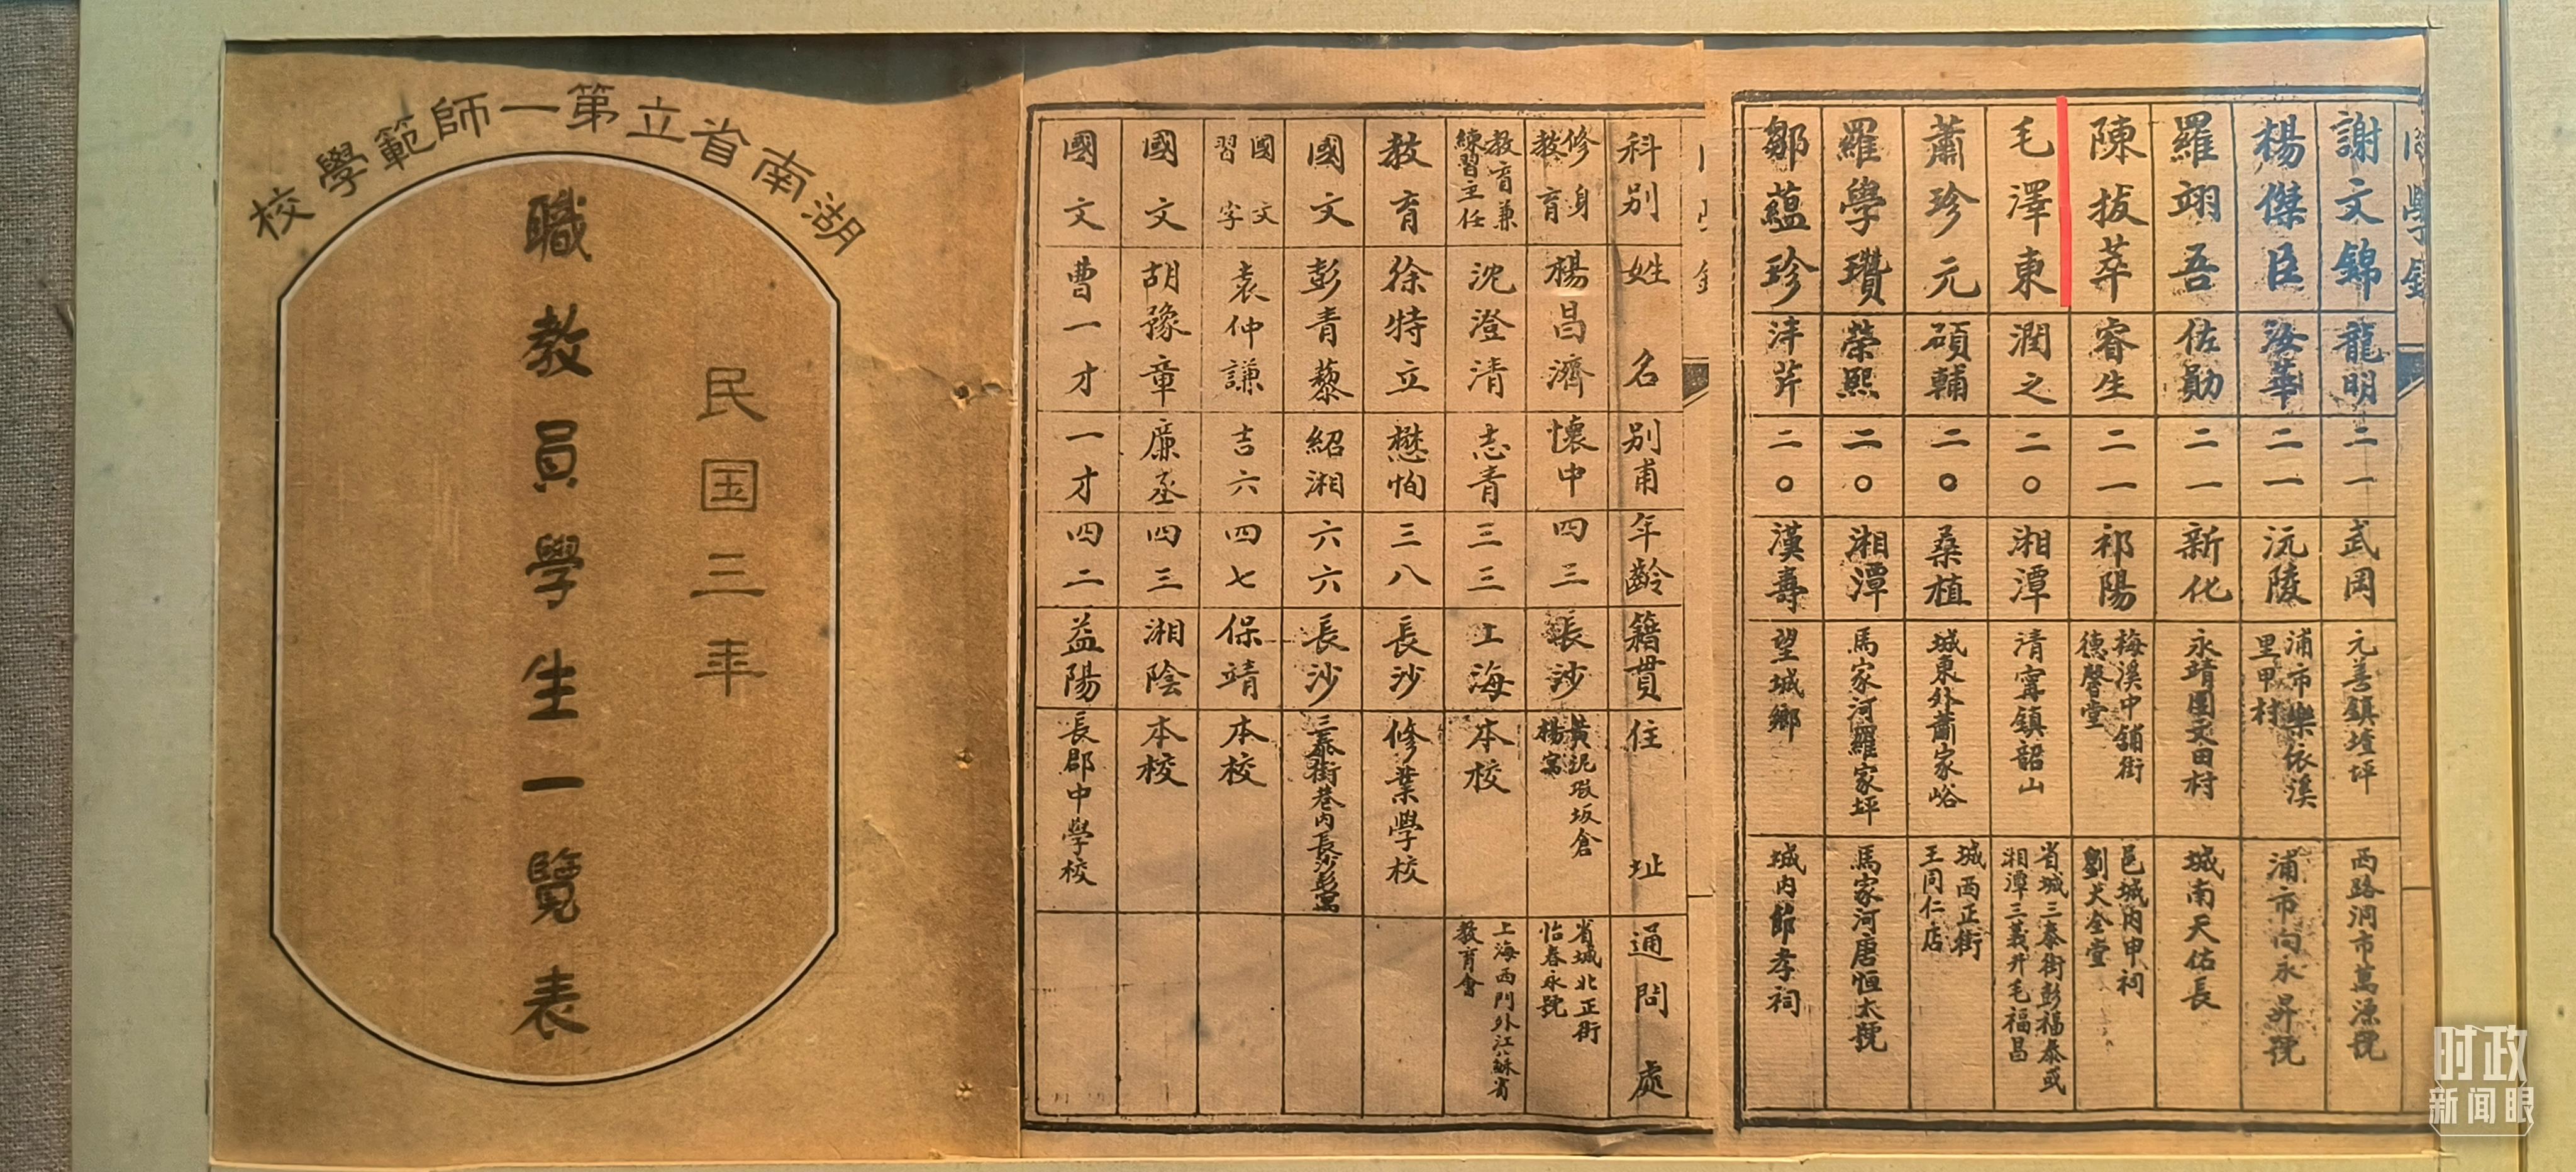 湖南省立第一師範學校
民国三年
職教員學生一覽表
科別 姓名 別甫 年齡 籍貫 住址 通問處
修身教育 楊昌濟 懷中 四三 長沙 黃泥塅坂倉楊寓 省城北正街怡春永號
教育兼練習主任 沈澄清 志青 三三 上海 本校 上海西門外江蘇省教育會
教育 徐特立 懋恂 三八 長沙 修業學校
國文 彭青藜 紹湘 六六 長沙 三泰街巷內長沙彭寓
國文習字 袁仲謙 吉六 四七 保靖 本校
國文 胡豫章 廉丞 四三 湘陰 本校
國文 曹一才 一才 四二 益陽 長郡中學校
同學錄
謝文錦 龍明 二一 武岡 元善鎮堷坪 西路洞市萬源號
楊傑臣 海華 二一 沅陵 浦市樂依溪里甲村 浦市向永昇號
羅翊吾 佐勛 二一 新化 永靖團文田村 城南天佑長
陳拔萃 睿生 二一 祁陽 梅溪中舖街德馨堂 邑城內申祠劉大全堂
毛澤東 潤之 二〇 湘潭 清甯鎮韶山 省城三泰街彭福泰或湘潭三義升毛福昌
蕭珍元 碩輔 二〇 桑植 城東外蕭家峪 城西正街王同仁店
羅學瓚 榮熙 二〇 湘潭 馬家河羅家坪 馬家河唐恒太號
鄒蘊珍 泮芹 二〇 漢壽 望城鄉 城內節孝祠
时政
新闻眼